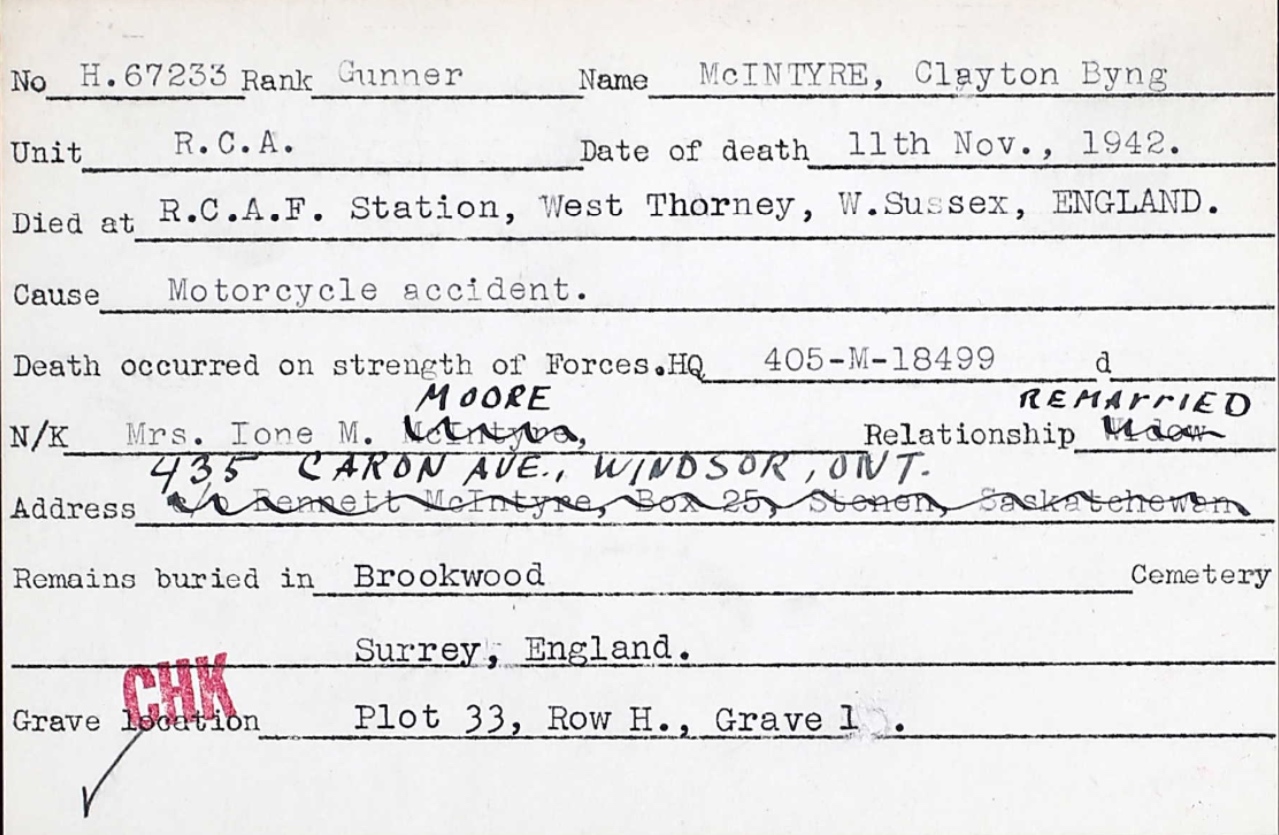 No H.67233 Rank Gunner Name McINTYRE, Clayton Byng
Unit R.C.A. Date of death 11th Nov., 1942.
Died at R.C.A.F. Station, West Thorney, W.Sussex, ENGLAND.
Cause Motorcycle accident.
Death occurred on strength of Forces.HQ 405-M-18499 d
MOORE REMARrIED
N/K Mrs. Ione M. McIntyre, Relationship Widow
435 CARON AVE., WINDSOR, ONT.
Address c/o Bennett McIntyre, Box 25, Stenen, Saskatchewan
Remains buried in Brookwood Cemetery
Surrey, England.
CHK
Grave location Plot 33, Row H., Grave 1 .